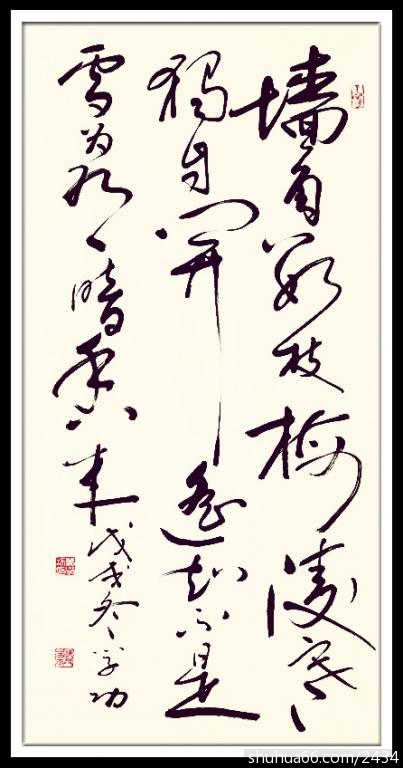 墙角数枝梅凌寒
独自开遥知不是
雪为有暗香来
戊戌冬学功
shuhua66.com/2434